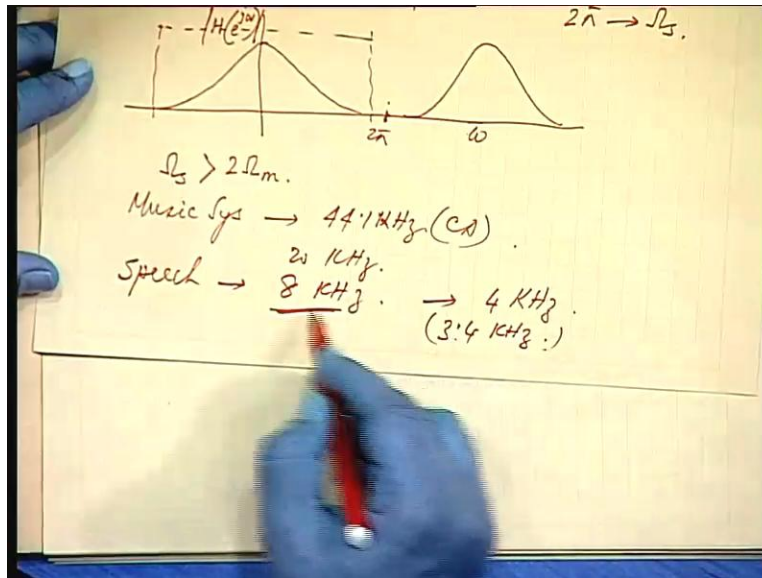 |H(e^{jω})|
2π → Ωs.
2π
ω
Ωs > 2Ωm.
Music Sys → 44.1 KHz (CD).
20 KHz.
Speech → 8 KHz. → 4 KHz.
(3.4 KHz.)